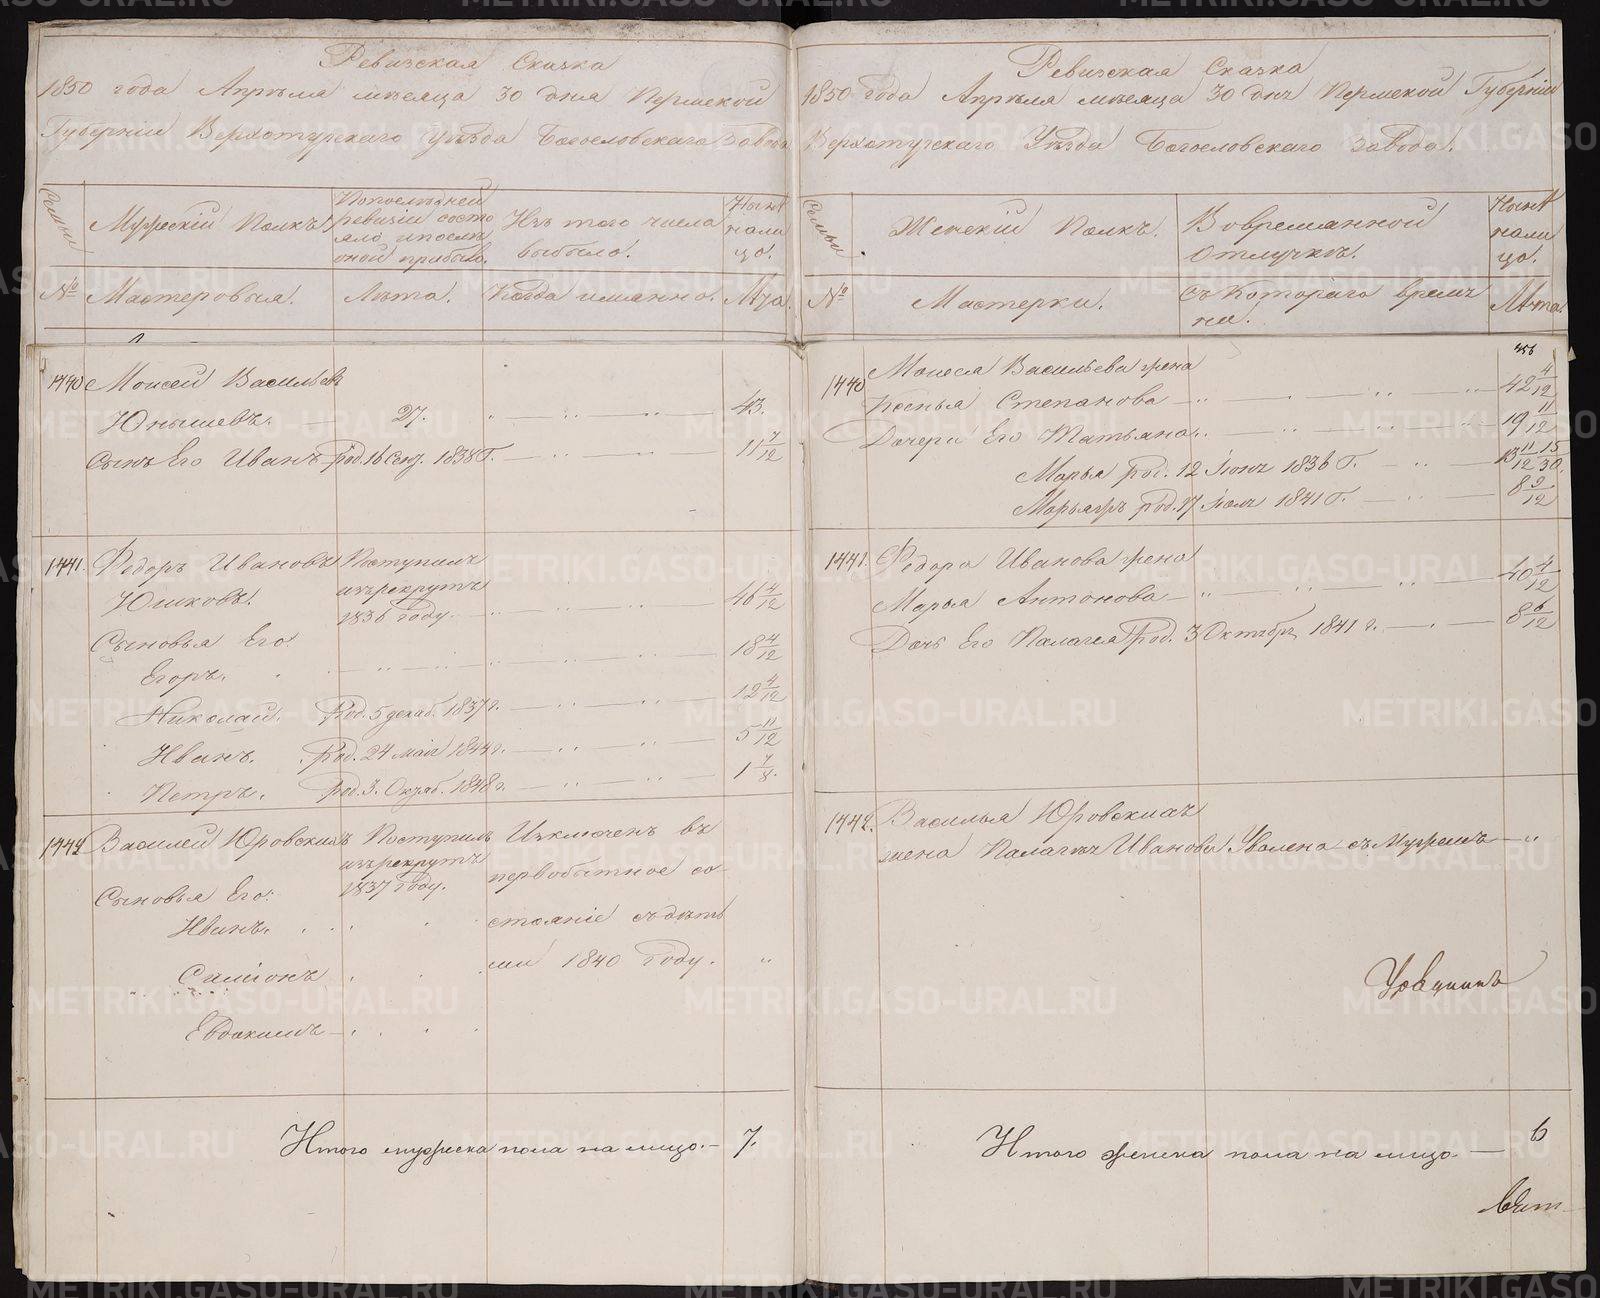 Ревизская Сказка
1850 года Апрѣля мѣсяца 30 дня Пермской
Губерніи Верхотурскаго Уѣзда Богословскаго Завода
Семьи
Мужескій Полкъ.
По последней
ревизіи состо
яло и после
оной прибыло.
Изъ того числа
выбыло.
Нынѣ
нали
цо.
№
Мастеровыя.
Лѣта.
Когда имянно.
Лѣта.
1440
Моисей Васильевъ
Юнышевъ.
27.
43.
Сынъ Его Иванъ
род. 16 Сен. 1838 Г.
11 7/12
1441.
Федоръ Ивановъ
Юшковъ.
Поступилъ
изъ рекрутъ
1836 году.
46 4/12
Сыновья Его:
Егоръ.
18 4/12
Николай.
Род. 5 декаб. 1837 г.
12 4/12
Иванъ.
Род. 24 мая 1844 г.
5 11/12
Петръ.
Род. 3 Октяб. 1848 г.
1 7/8.
1442
Василей Юровскихъ
Поступилъ
изъ рекрутъ
1837 году.
Изключенъ въ
первобытное со-
стояніе съ деть
ми 1840 году.
Сыновья Его:
Иванъ.
Симіонъ
Евдокимъ
Итого мужеска пола на лицо. 7.
Ревизская Сказка
1850 года Апрѣля мѣсяца 30 дня Пермской Губерніи
Верхотурскаго Уѣзда Богословскаго Завода.
Семьи
Женскій Полкъ.
Во временной
отлучкѣ.
Нынѣ
нали
цо.
№
Мастерки.
Съ котораго време
ни.
Лѣта.
456
1440
Моисея Васильева жена
Ксенья Степанова
42 4/12
Дочери Его Татьяна
19 11/12
Марья род. 12 Іюня 1836 Г.
13 11/12 15/30
род. 17 Іюля 1841 Г.
8 9/12
1441.
Федора Иванова жена
Марья Антонова
40 4/12
Дочь Его Палагея род. 3 Октября 1841 г.
8 6/12
1442.
Василья Юровскихъ
жена Палагея Иванова Уволена съ Мужемъ
Итого женска пола на лицо. 6
METRIKI.GASO-URAL.RU